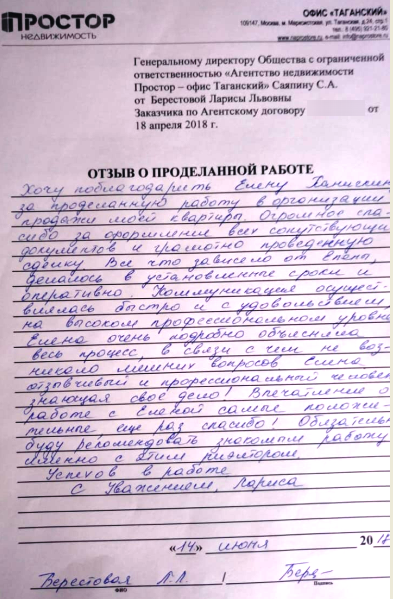 ПРОСТОР
НЕДВИЖИМОСТЬ
ОФИС «ТАГАНСКИЙ»
109147, Москва, м. Марксистская, ул. Таганская, д.24, стр.1
тел.: 8 (495) 921-21-60
www.naprostore.ru, e-mail: info@naprostore.ru
Генеральному директору Общества с ограниченной
ответственностью «Агентство недвижимости
Простор – офис Таганский» Саяпину С.А.
от Берестовой Ларисы Львовны
Заказчика по Агентскому договору от
18 апреля 2018 г.
ОТЗЫВ О ПРОДЕЛАННОЙ РАБОТЕ
Хочу поблагодарить Елену
за проделанную работу в организации
продажи моей квартиры. Огромное спа-
сибо за оформление всех сопутствующи
документов и грамотно проведённую
сделку. Все что зависело от Елены,
делалось в установленные сроки и
оперативно. Коммуникация осущест-
влялась быстро и с удовольствием,
на высоком профессиональном уровне
Елена очень подробно объясняла
весь процесс, в связи с чем не воз-
никало лишних вопросов Елена
отзывчивый и профессиональный человек
знающая свое дело! Впечатление о
работе с Еленой самые положи-
тельные еще раз спасибо! Обязательн
буду рекомендовать знакомым работу
именно с этим риэлтором.
Успехов в работе
С Уважением, Лариса
«14» июня 2018
Берестовая Л.Л. / Бере-
ФИО Подпись